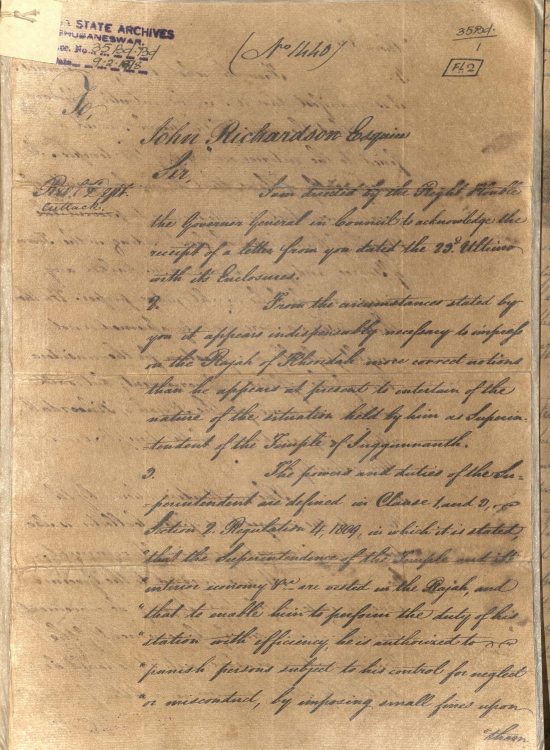 STATE ARCHIVES
BHUBANESWAR.
Acc. No. 35 Bd. Bd
Date 9-2-1818
(No 1440)
35 Bd.
1
Fl. 2
To,
John Richardson Esquire
Sir,
Cuttack.
I am directed by the Right Hon'ble
the Governor General in Council to acknowledge the
receipt of a letter from you dated the 23d Ultimo
with its Enclosures.
2. From the circumstances stated by
you it appears indispensably necessary to impress
on the Rajah of Khordah more correct notions
than he appears at present to entertain of the
nature of the situation held by him as Superin-
tendent of the Temple of Juggannauth.
3. The powers and duties of the Su-
-perintendent are defined in Clause 1, and 2,
Section 2. Regulation 4, 1809, in which it is stated,
"that the Superintendence of the Temple and its
"interior economy &ca are vested in the Rajah, and
"that to enable him to perform the duty of his
"station with efficiency, he is authorized to
"punish persons subject to his control for neglect
"or misconduct, by imposing small fines upon
"them